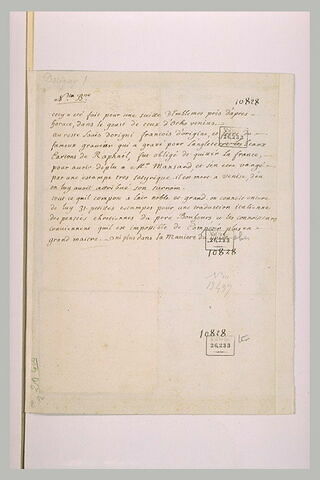 Dorigni 1
N.ta B.ne
10828
cecy a eté fait pour une suitte d'Emblemes pris d'apres
horace, dans le gout de ceux d'Otho venius.
au reste Louis dorigni francois d'origine, et
fameux graveur qui a gravé pour l'angleterre les beaux
Cartons de Raphael, fut obligé de quitter la france,
pour avoir deplu a Mr. Mansard et s'en etre vangé
par une estampe tres satyrique. il est mort a venise, d'ou
en luy avoit attribué son surnom.
tout ce qu'il compose a l'air noble et grand. on connoit encore
de luy 31 petites estampes pour une traduction italienne
des pensées chretiennes du pere Bouhours, et les connoisseurs
conviennent qu'il est impossible de composer plus en
grand maitre
26,233
10828
10828
26,233